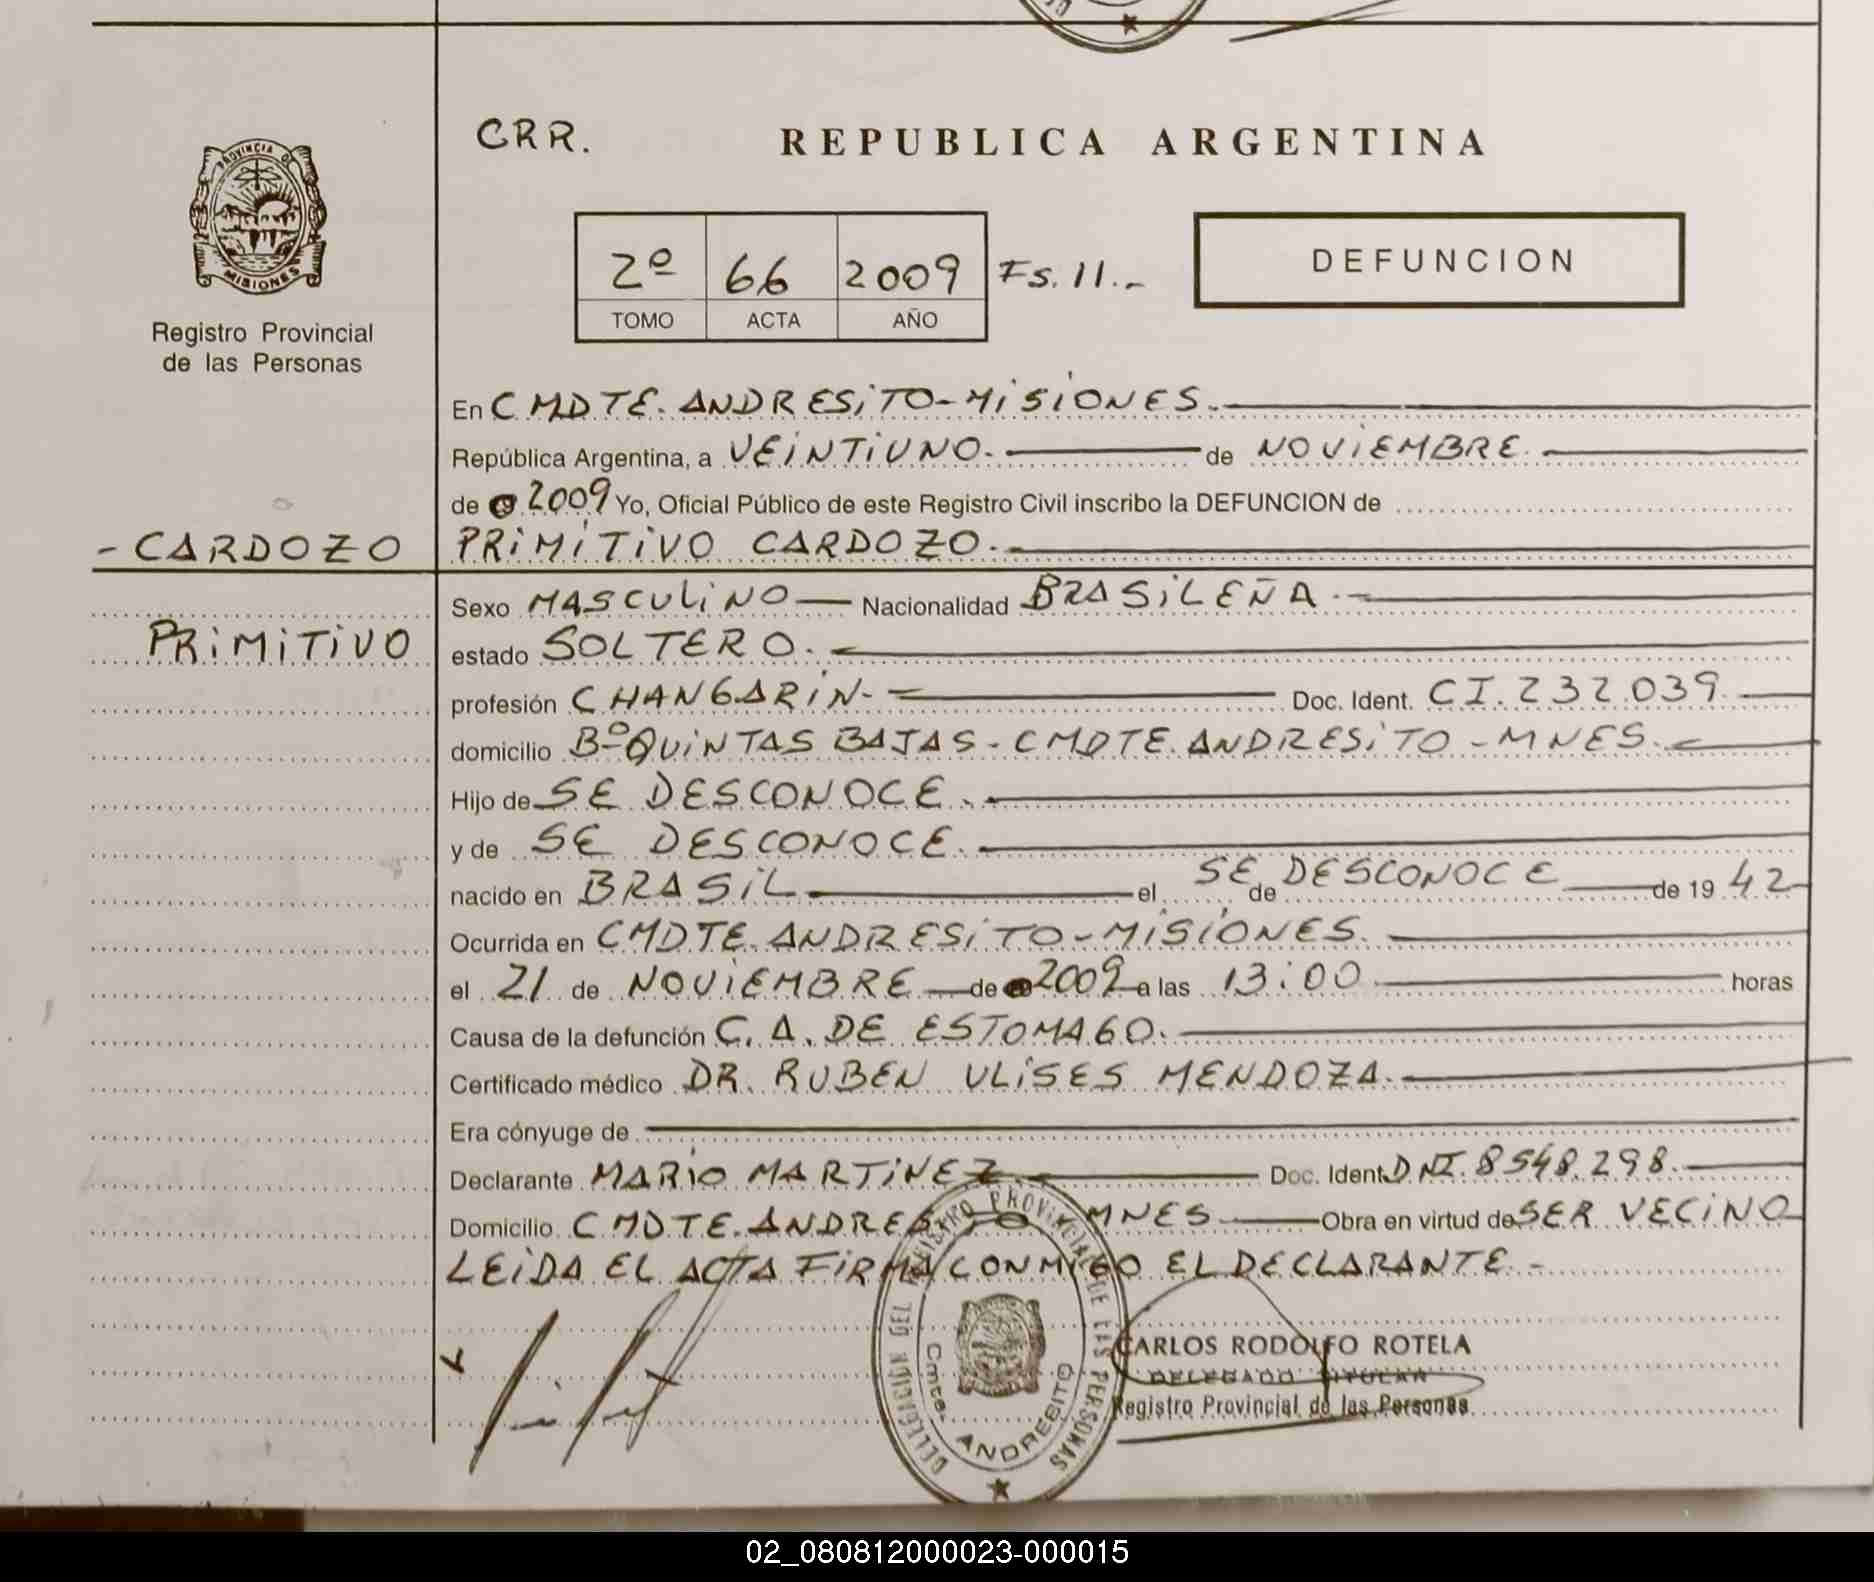 CRR.
REPUBLICA ARGENTINA
PROVINCIA DE
MISIONES
Registro Provincial
de las Personas
2º 66 2009 Fs. 11.-
TOMO ACTA AÑO
DEFUNCION
En CMDTE. ANDRESITO-MISIONES.
República Argentina, a VEINTIUNO. de NOVIEMBRE.
de 2009 Yo, Oficial Público de este Registro Civil inscribo la DEFUNCION de
- CARDOZO
PRIMITIVO CARDOZO.
Sexo MASCULINO Nacionalidad BRASILEÑA.
PRIMITIVO
estado SOLTERO.
profesión CHANGARIN.- Doc. Ident. CI.232.039
domicilio Bº QUINTAS BAJAS-CMDTE.ANDRESITO-MNES.
Hijo de SE DESCONOCE.
y de SE DESCONOCE.
nacido en BRASIL el SE de DESCONOCE de 19 42
Ocurrida en CMDTE. ANDRESITO-MISIONES.
el 21 de NOVIEMBRE de 2009 a las 13:00 horas
Causa de la defunción C.A. DE ESTOMAGO.
Certificado médico DR. RUBEN ULISES MENDOZA.
Era cónyuge de
Declarante MARIO MARTINEZ Doc. Ident. DNI. 8548.298.
Domicilio CMDTE. ANDRESITO MNES Obra en virtud de SER VECINO
LEIDA EL ACTA FIRMA CONMIGO EL DECLARANTE.-
DELEGACIÓN DEL REGISTRO PROVINCIAL DE LAS PERSONAS
Cmte. ANDRESITO
CARLOS RODOLFO ROTELA
DELEGADO TITULAR
Registro Provincial de las Personas
02_080812000023-000015